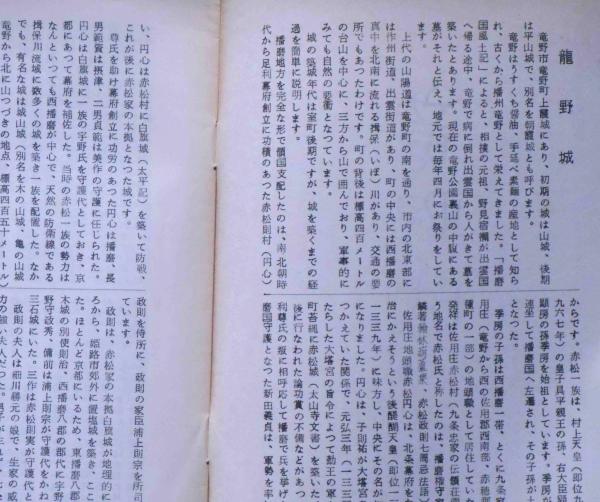 龍野城
竜野市竜野町上霞城にあり、初期の城は山城、後期
は平山城で、別名を朝霞城とも呼びます。
竜野はうすくち醤油、手延べ素麺の産地として知ら
れ、古くから播州竜野として栄えてきました。「播磨
国風土記」によると、相撲の元祖、野見宿禰が出雲国
へ帰る途中、竜野で病に倒れ出雲国から人がきて墓を
築いたとあります。現在の竜野公園裏山の中腹にある
墓がそれと伝え、地元では毎年四月にお祭りをしてい
ます。
上代の山陽道は竜野町の南を通り、市内の北東部に
は作州街道、出雲街道があり、町の中央には西播磨の
真中を北南に流れる揖保（いぼ）川があり、交通の要
所でもあったわけです。町の背後は標高四百一メートル
の台山を中心に、三方から山で囲んでおり、軍事的に
みても自然の要衝となっています。
城の築城年代は室町後期ですが、城を築くまでの経
過を簡単に説明します。
播磨地方を完全な形で領国支配したのは、南北朝時
代から足利幕府創立に功績のあった赤松則村（円心）
からです。赤松一族は、村上天皇（即位九
九六七年）の皇子具平親王の孫、右大臣
顕房の孫季房を始祖としています。季房
連坐して播磨国へ左遷され、その子孫が
となった。
季房の子孫は西播磨一帯、とくに九条家
用庄（竜野から西の佐用郡西南部、赤穂郡
種町の一部）の地頭職として居住していた
発祥は佐用庄赤松村（九条忠家の伝領荘
う地名で赤松氏と称したのは、播磨権守
佐用庄地頭職赤松円心は、北条幕府をた
治にかえそうという後醍醐天皇（即位一
一三三九年）に味方し、中央にその名が
になりました。円心は、子則祐が大塔宮
つかえていた関係で、元弘三年（一三三
たらした大塔宮の旨令によって勤王の軍
町苔縄に赤松城（太山寺文書）を築いた
後に行なわれた論功賞の不備などがあっ
利尊氏の叛に相呼応して播磨で兵を挙げ
磨国守護となった新田義貞は、軍勢を率
い、円心は赤松村に白旗城（太平記）を築いて防戦、
これが後に赤松家の本拠となった城です。
尊氏を助け幕府創立に功労のあった円心は播磨、長
男範資は摂津、二男貞範は美作の守護に任じられた。
円心は白旗城に一族の宇野氏を守護代としておき、京
都にあって幕府を補佐した。当時の赤松一族の勢力は
なんといっても西播磨が中心で、天然の防衛線である
揖保川流域に数多くの城を築き一族を配置した。なか
でも、有名な城は城山城（別名を木の山城、亀の山城
竜野から北に山つづきの地点、標高四百五十メートル）
政則を侍所に、政則の家臣浦上則宗を所司
ています。
政則は、赤松家の本拠白旗城が地理的に
ろから、姫路市郊外に置塩城を築き、ここ
た。ほとんど京都にいるため、東播磨八郡
木城の別所則治、西播磨八郡の郡代に宇野
野守政秀、備前は浦上則宗が守護代をかね
三石城にいた。三作は赤松則実が守護代と
政則の夫人は細川勝元の娘で、生家の威